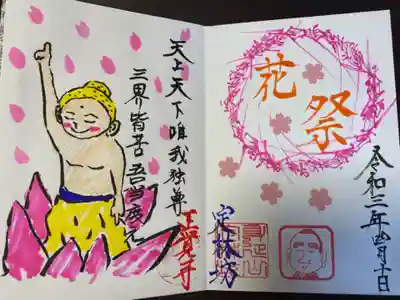 花祭
令和三年四月十日
天上天下唯我独尊
三界皆苦吾当